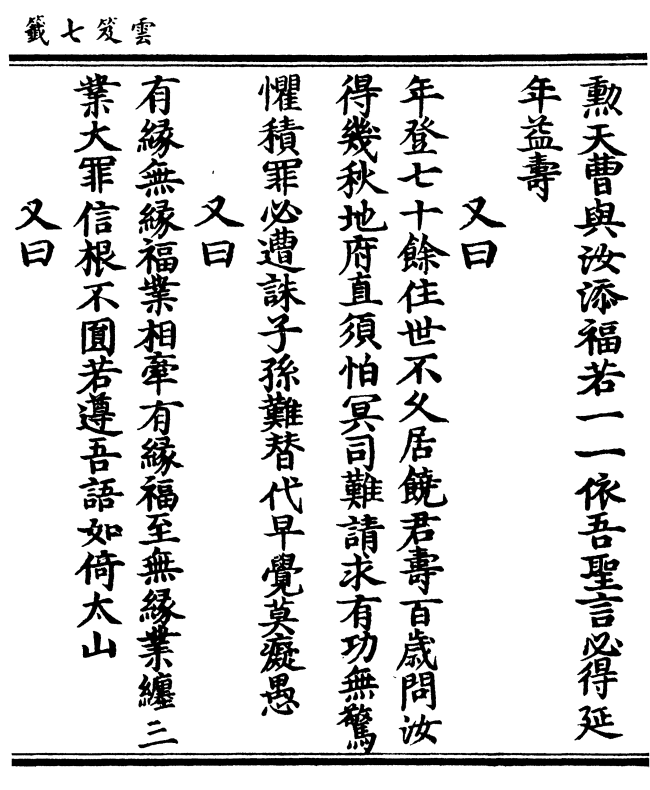 雲笈七籤
勲天曹與汝添福若一一依吾聖言必得延
年益壽
又曰
年登七十餘住世不久居饒君壽百歲問汝
得幾秋地府直須怕冥司難請求有功無驚
懼積罪必遭誅子孫難替代早覺莫癡愚
又曰
有縁無縁福業相牽有縁福至無縁業纏三
業大罪信根不圓若遵吾語如倚太山
又曰